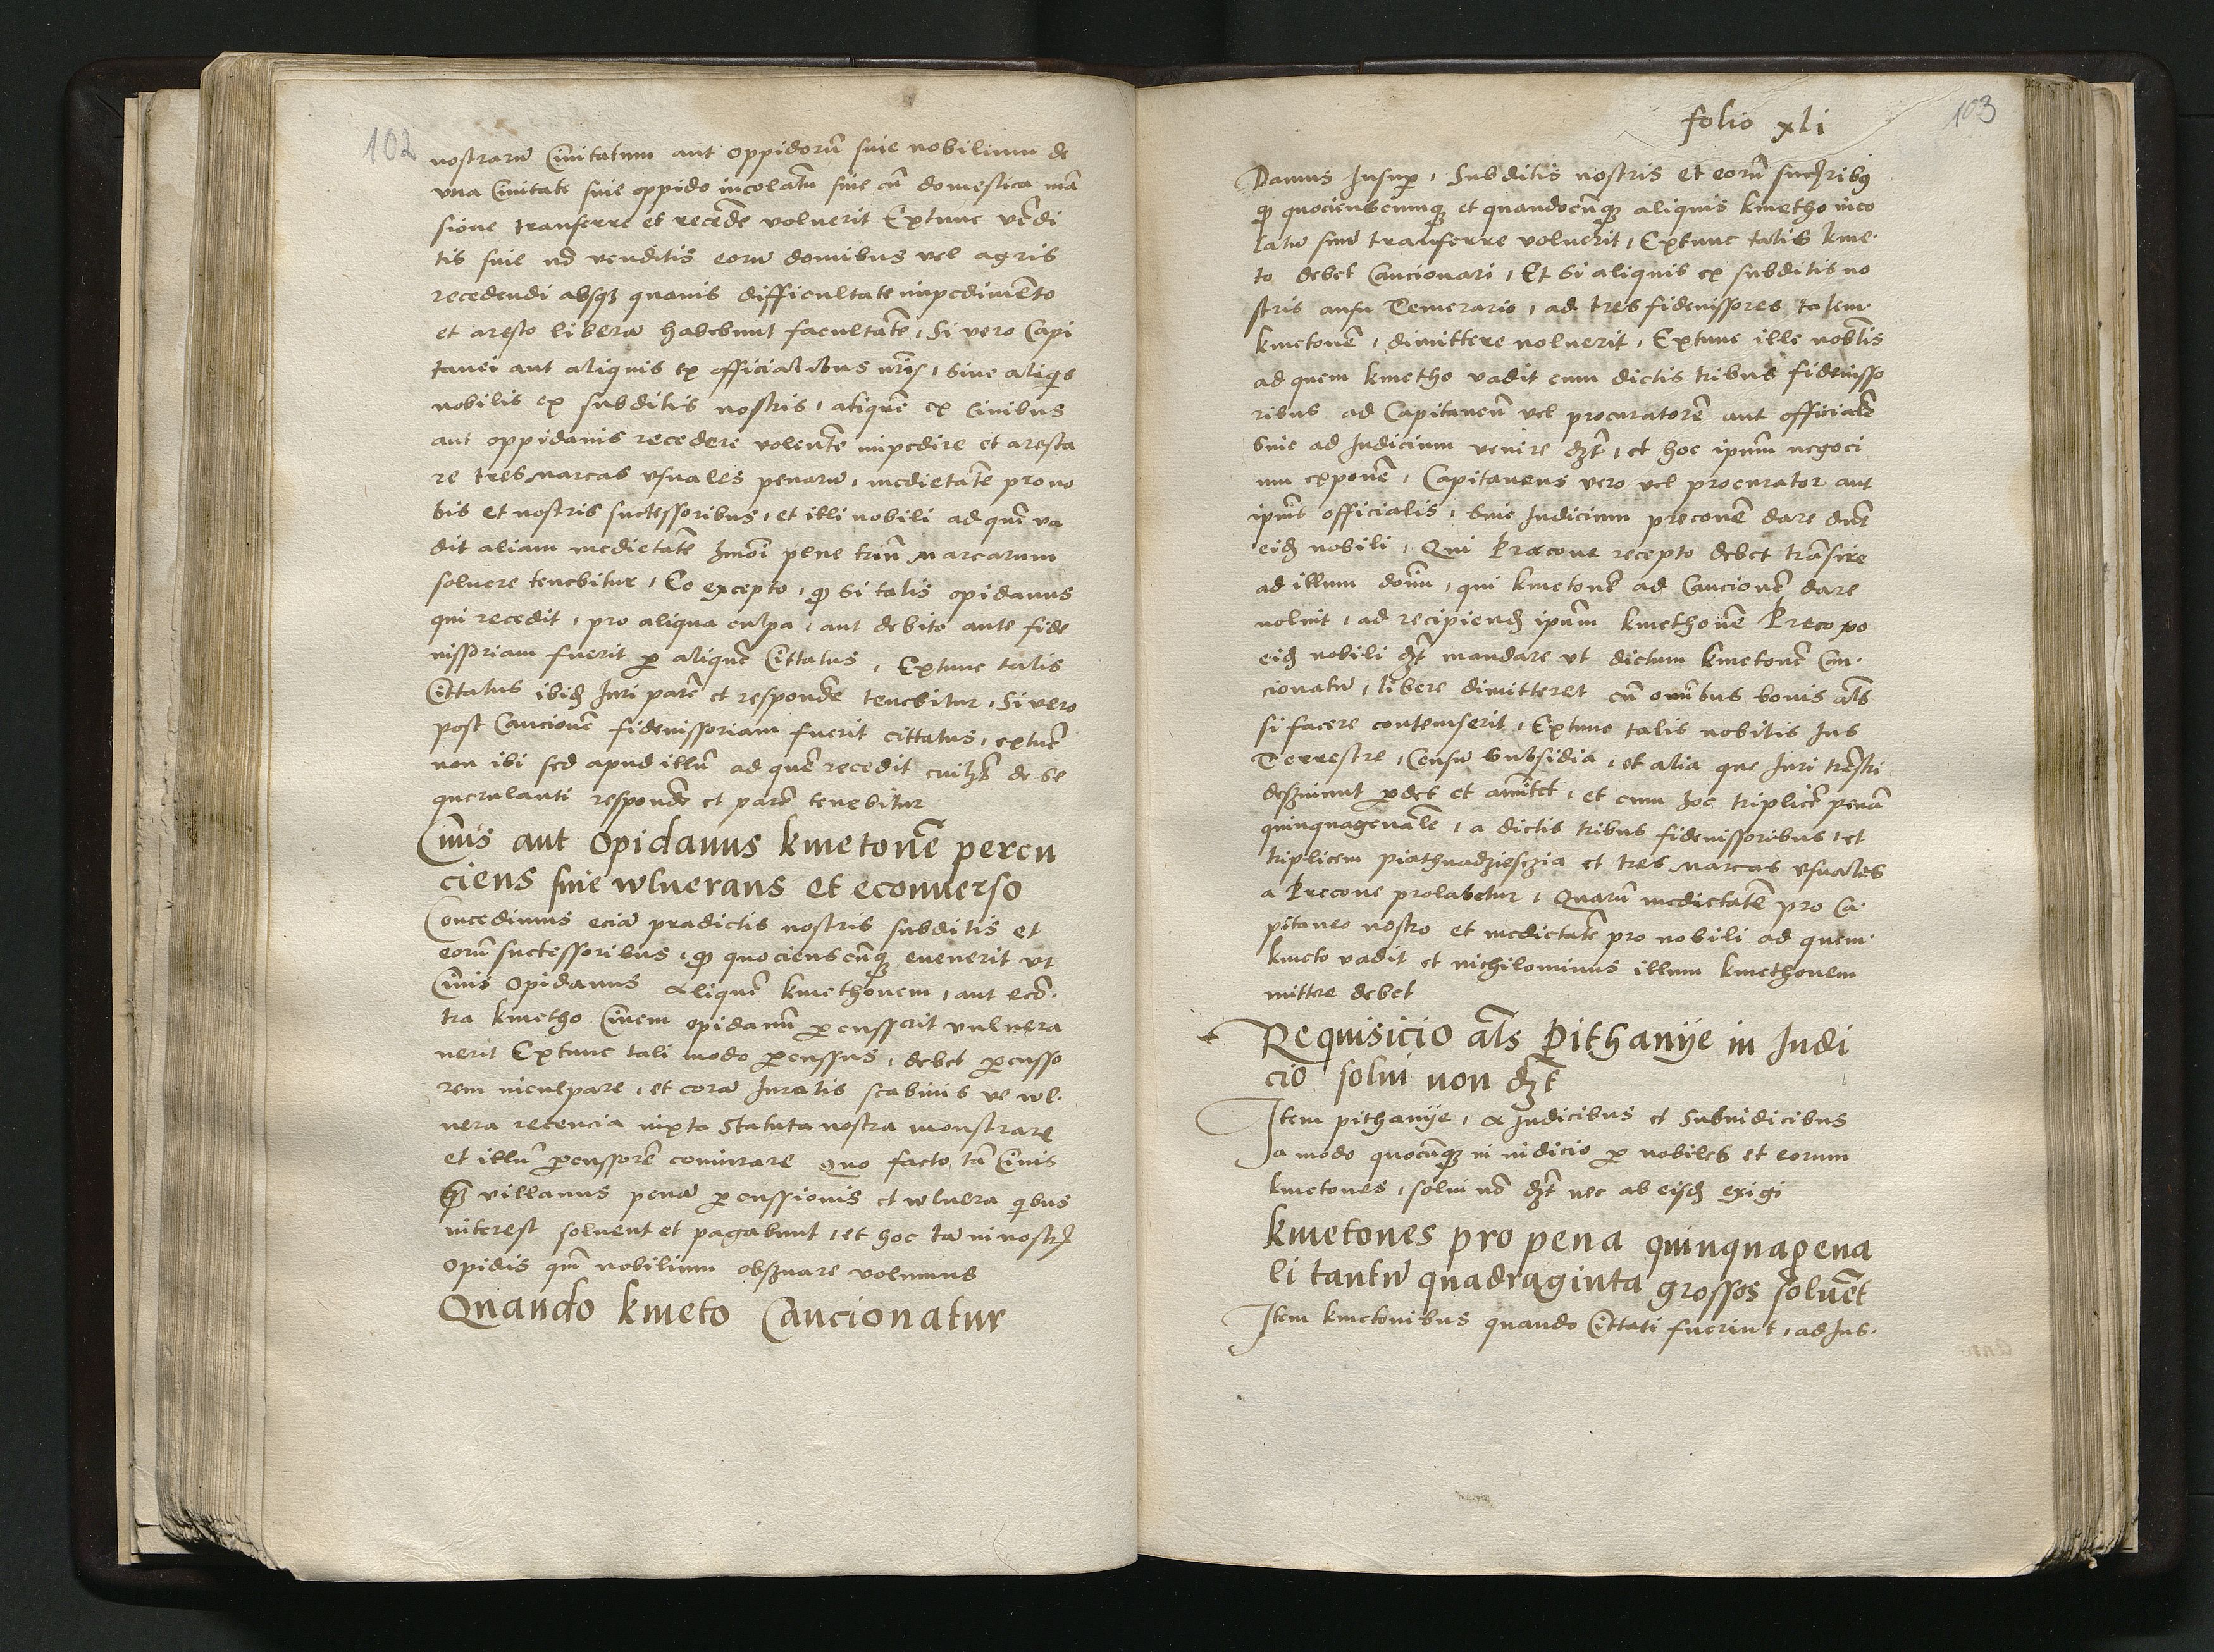 102
nostrarū Ciuitatum aut oppidorū siue nobilium de
vna Ciuitate siue oppido incolatū siue cū domestica mā
sione transferre et recēde voluerit Extunc vēdi
tis siue nō venditis eorū domibus vel agris
recedendi absqꝫ quauis difficultate impedimēto
et aresto liberā habebunt facultatē, Si vero Capi
tanei aut aliquis ex officialibus nr̄is, Siue aliqis
nobilis ex subditis nostris, aliquē ex Ciuibus
aut oppidanis recedere volentē impedire et aresta
re tres Marcas vsuales penarū, medietatē pro no
bis et nostris suctessoribus, et illi nobili ad quē va
dit aliam medietatē hmōi pene triū Marcarum
soluere tenebitur, Eo excepto, ꝙ Si talis opidanus
qui recedit, pro aliqua culpa, aut debito ante fide
iussoriam fuerit ꝑ aliquē Cittatus, Extunc talis
Cittatus ibidꝫ Iuri parē et respondē tenebitur, Si vero
post Caucionē fideiussoriam fuerit cittatus, extūc
non ibi sed apud illū ad quē recedit cuilꝫt de se
querulanti respondē et parē tenebitur
Ciuis aut Opidanus kmetonē percu
ciens siue wlnerans et econuerso
Concedimus eciā predictis nostris subditis et
eorū suctessoribus, ꝙ quocienscūqꝫ euenerit vt
Ciuis Opidanus Aliquē kmethonem, aut ecō.
tra kmetho Ciuem opidanū ꝑcusserit vulnera
uerit Extunc tali modo ꝑcussus, debet ꝑcusso
rem inculpare, et corā Iuratis scabinis ve wl.
nera recencia iuxta Statuta nostra monstrare
et illū ꝑcussorē coniurare Quo facto tā Ciuis
qꝫ villanus penā ꝑcussionis et wlnera qibus
interest soluent et pagabunt, et hoc tā in nostrꝭ
Opidis qm̄ nobilium obsꝫuare volumus
Quando kmeto Caucionatur
folio xli
103
Damus Insuꝑ, Subditis nostris et eorū succꝭribꝰ
ꝙ quocienscumqꝫ et quandocūqꝫ aliquis kmetho inco
latū suū transferre voluerit, Extunc talis kme.
to debet Caucionari, Et Si aliquis ex subditis no
stris ausu Temerario, ad tres fideiussores talem.
kmetonē, dimittere noluerit, Extunc ille nobl̄is
ad quem kmetho vadit cum dictis tribus fideiusso
ribus ad Capitaneū vel procuratorē aut officialē
Siue ad Iudicium venire dꝫt, et hoc ipm̄m negoci
um exponē, Capitaneus vero vel procurator aut
ipm̄s officialis, Siue Iudicium preconē dare dn̄t
eidꝫ nobili, Qui Precone recepto debet trāsire
ad illum domū, qui kmetonē ad Caucionē dare
noluit, ad recipiendꝫ ipm̄m kmethonē Preco po
eidꝫ nobili dꝫt mandare vt dictum kmetonē Cau.
cionatū, libere dimitteret cū omībus bonis al̄s
si facere contemserit, Extunc talis nobilis Ius
Terrestre, Censū Subsidia, et alia que Iuri trēstri
desꝫuiunt ꝑdet et amītet, et cum hoc triplicē penā
quinquagenalē, a dictis tribus fideiussoribus, et
triplicem piathnadziesczia et tres Marcas vsuales
a Precone prolabetur, Quarū medietatē pro Ca.
pitaneo nostro et medietatē pro nobili ad quem.
kmeto vadit et nichilominus illum kmethonem
mittere debet
Requisicio al̄s Pithanije in Iudi
cio solui non dꝫt
Item pithanije, A Iudicibus et Subiudicibus
a modo quocūqꝫ in iudicio ꝑ nobiles et eorum
kmetones, solui nō dꝫt nec ab eisdꝫ exigi
kmetones pro pena quinquagena
li tantū quadraginta grossos soluēt
Item kmetonibus quando Cittati fuerint, ad Ius.